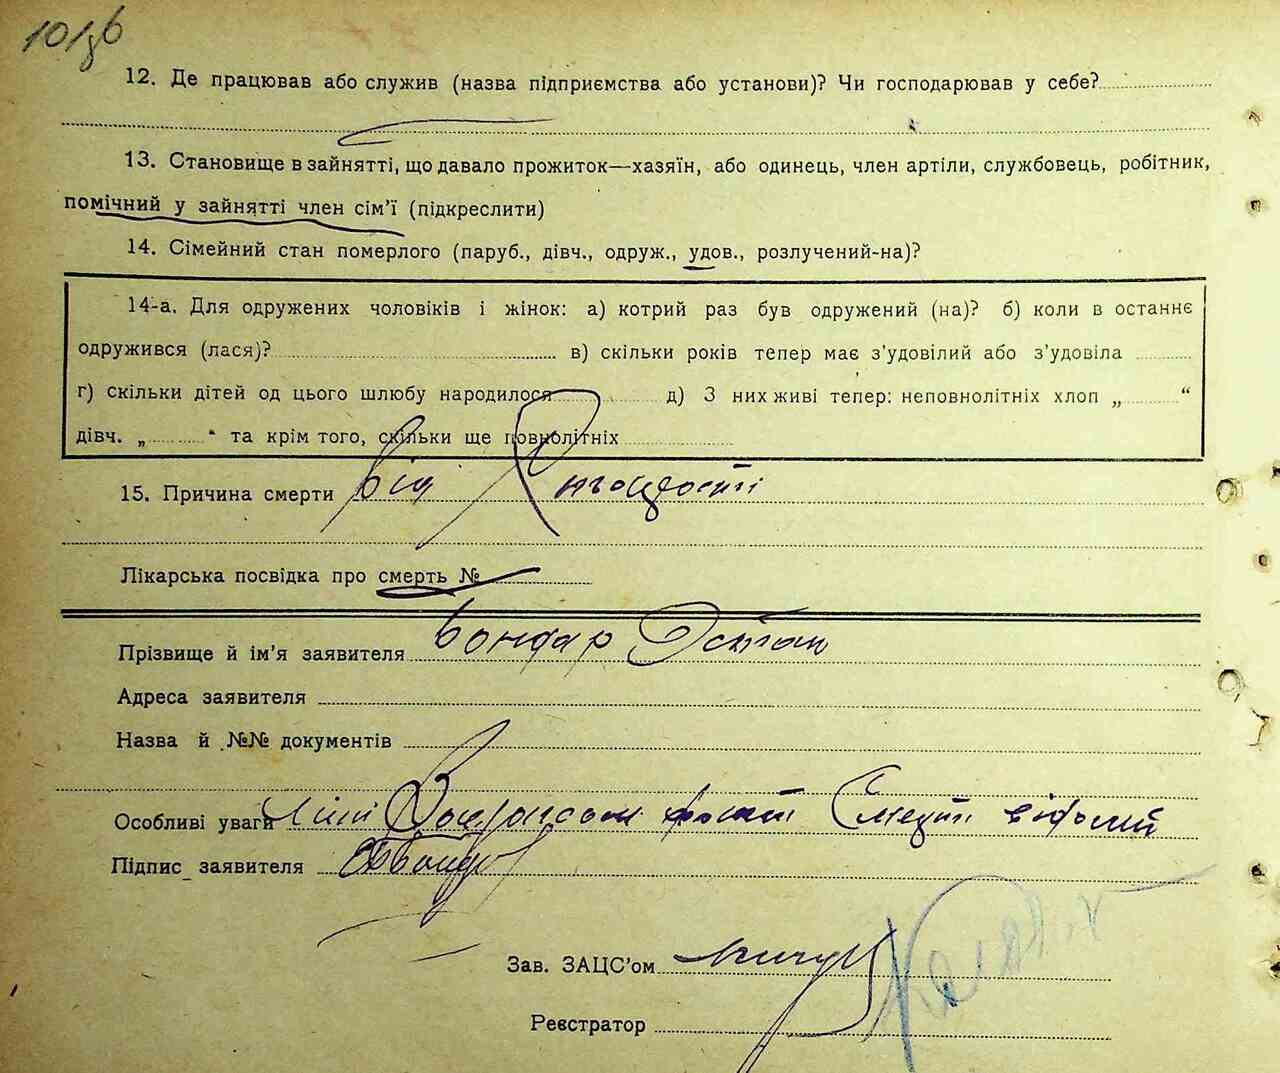 12. Де працював або служив (назва підприємства або установи)? Чи господарював у себе?
13. Становище в зайнятті, що давало прожиток—хазяїн, або одинець, член артіли, службовець, робітник,
помічний у зайнятті член сім'ї (підкреслити)
14. Сімейний стан померлого (паруб., дівч., одруж., удов., розлучений-на)?
14-а. Для одружених чоловіків і жінок: а) котрий раз був одружений (на)? б) коли в останнє
одружився (лася)? в) скільки років тепер має з'удовілий або з'удовіла
г) скільки дітей од цього шлюбу народилося д) З них живі тепер: неповнолітніх хлоп „ “
дівч. „ “ та крім того, скільки ще повнолітніх
15. Причина смерти від
Лікарська посвідка про смерть №
Прізвище й ім'я заявителя Бондар Остап
Адреса заявителя
Назва й №№ документів
Особливі уваги смерти відомий
Підпис заявителя
Зав. ЗАЦС'ом
Реєстратор